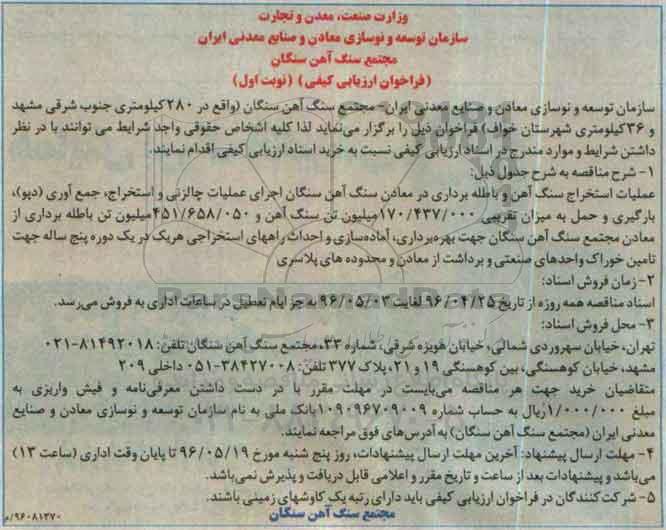 وزارت صنعت، معدن و تجارت
سازمان توسعه و نوسازی معادن و صنایع معدنی ایران
مجتمع سنگ آهن سنگان
(فراخوان ارزیابی کیفی) (نوبت اول)
سازمان توسعه و نوسازی معادن و صنایع معدنی ایران- مجتمع سنگ آهن سنگان (واقع در ۲۸۰ کیلومتری جنوب شرقی مشهد
و ۳۶کیلومتری شهرستان خواف) فراخوان ذیل را برگزار می‌نماید لذا کلیه اشخاص حقوقی واجد شرایط می توانند با در نظر
داشتن شرایط و موارد مندرج در اسناد ارزیابی کیفی نسبت به خرید اسناد ارزیابی کیفی اقدام نمایند.
۱- شرح مناقصه به شرح جدول ذیل:
عملیات استخراج سنگ آهن و باطله برداری در معادن سنگ آهن سنگان اجرای عملیات چالزنی و استخراج، جمع آوری (دپو)،
بارگیری و حمل به میزان تقریبی ۱۷۰/۴۳۷/۰۰۰میلیون تن سنگ آهن و ۴۵۱/۶۵۸/۰۵۰میلیون تن باطله برداری از
معادن مجتمع سنگ آهن سنگان جهت بهره‌برداری، آماده‌سازی و احداث راههای استخراجی هریک در یک دوره پنج ساله جهت
تامین خوراک واحدهای صنعتی و برداشت از معادن و محدوده های پلاسری
۲- زمان فروش اسناد:
اسناد مناقصه همه روزه از تاریخ ۹۶/۰۴/۲۵ لغایت ۹۶/۰۵/۰۳ به جز ایام تعطیل در ساعات اداری به فروش می‌رسد.
۳- محل فروش اسناد:
تهران، خیابان سهروردی شمالی، خیابان هویزه شرقی، شماره ۳۳، مجتمع سنگ آهن سنگان تلفن: ۸۱۴۹۲۰۱۸-۰۲۱
مشهد، خیابان کوهسنگی، بین کوهسنگی ۱۹ و ۲۱، پلاک ۳۷۷ تلفن: ۳۸۴۲۷۰۰۸-۰۵۱ داخلی ۲۰۹
متقاضیان خرید جهت هر مناقصه می‌بایست در مهلت مقرر با در دست داشتن معرفی‌نامه و فیش واریزی به
مبلغ ۱/۰۰۰/۰۰۰ریال به حساب شماره ۰۱۰۹۰۹۶۷۰۹۰۰۹بانک ملی به نام سازمان توسعه و نوسازی معادن و صنایع
معدنی ایران (مجتمع سنگ آهن سنگان) به آدرس‌های فوق مراجعه نمایند.
۴- مهلت ارسال پیشنهاد: آخرین مهلت ارسال پیشنهادات، روز پنج شنبه مورخ ۹۶/۰۵/۱۹ تا پایان وقت اداری (ساعت ۱۳)
می‌باشد و پیشنهادات بعد از ساعت و تاریخ مقرر و اعلامی قابل دریافت و پذیرش نمی‌باشد.
۵- شرکت کنندگان در فراخوان ارزیابی کیفی باید دارای رتبه یک کاوشهای زمینی باشند.
مجتمع سنگ آهن سنگان
۹۶۰۸۱۳۷۰/م